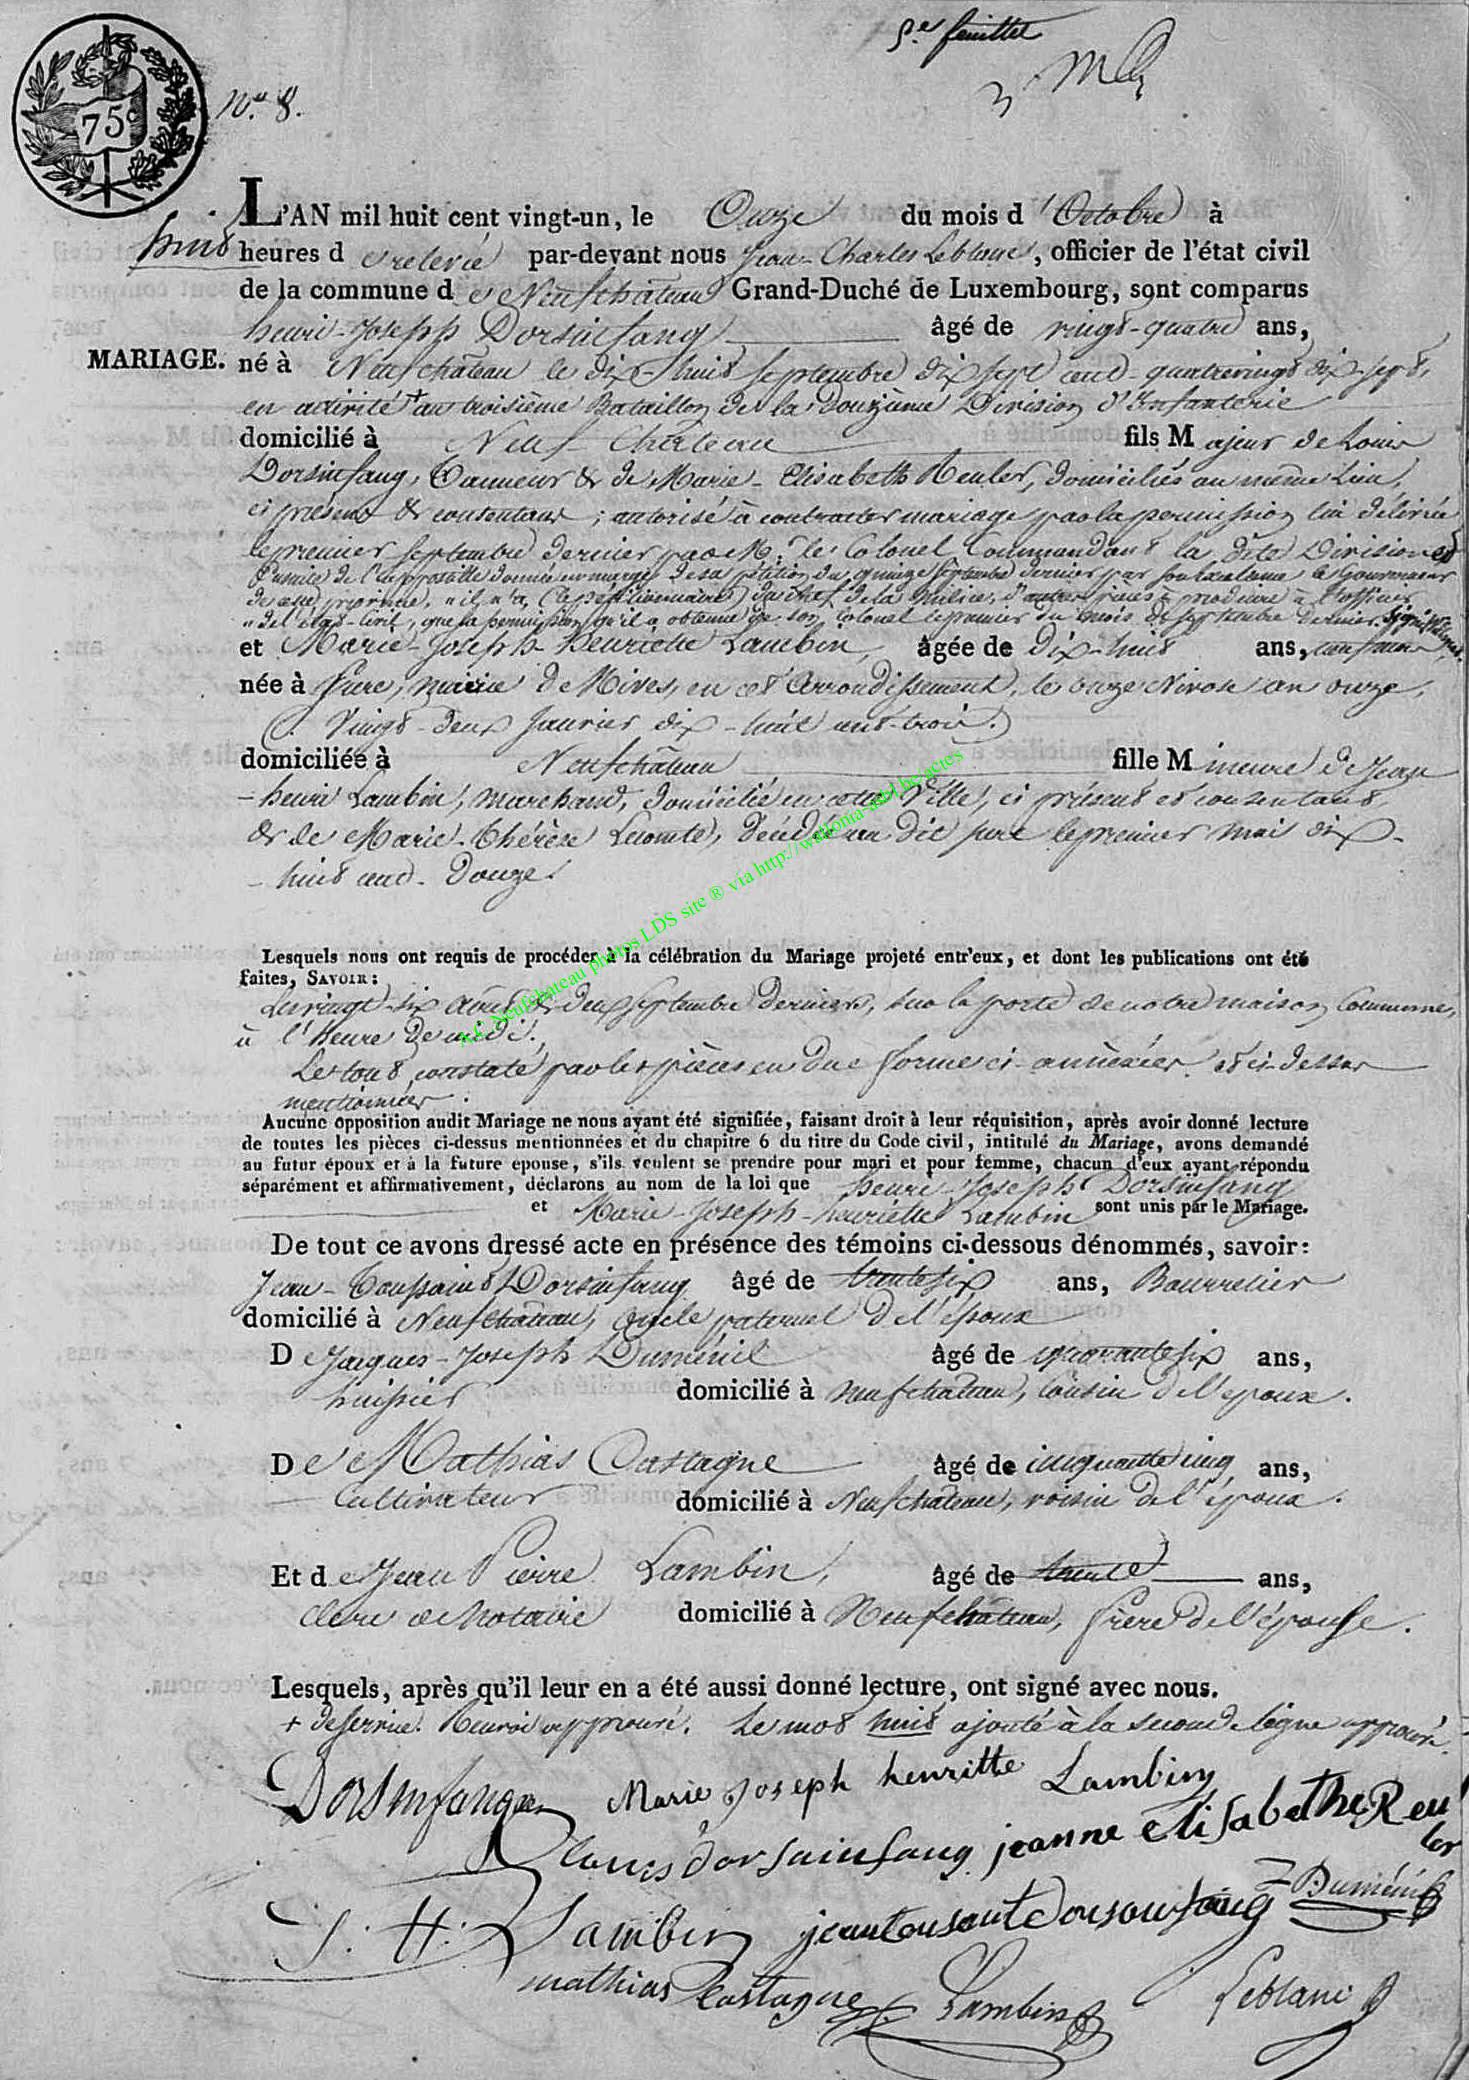 5.e feuillet
75c
N.o 8.
L'AN mil huit cent vingt-un, le Onze du mois d'Octobre à
huit heures d e relevée par-devant nous Jean-Charles Leblanc, officier de l'état civil
de la commune d e Neufchâteau Grand-Duché de Luxembourg, sont comparus
henri-Joseph Dorsinfang âgé de vingt-quatre ans,
MARIAGE. né à Neufchâteau le dix-huit Septembre dix sept cent-quatrevingt dix-sept,
en activité + au troisième Bataillon de la Douzième Division d'Infanterie
domicilié à Neuf-Château fils M ajeur de Louis
Dorsinfang, Tanneur & de Marie-Elisabeth Reuler, domiciliés au même Lieu,
ci présens & consentans ; autorisé à contracter mariage par la permission lui délivrée
le premier Septembre dernier par M.r le Colonel Commandant la dite Division et
l'apostille donnée en marge de sa pétition du quinze Septembre dernier par Son Excellence le Gouverneur
de cette province, "il n'a, (le pétitionnaire) du chef de la Milice, d'autres pièces à produire à l'officier
"de l'état-Civil, que la permission qu'il a obtenue de son Colonel le premier du mois de Septembre dernier.
et Marie-Joseph-henriette Lambin, âgée de Dix-huit ans,
née à Sure, mairie de Nives, en cet Arrondissement, le onze Nivose an onze,
(Vingt-deux Janvier dix-huit cent-trois.)
domiciliée à Neufchâteau fille M ineure de Jean
-henri Lambin, marchand, domicilié en cette Ville, ci présent et consentant,
& de Marie-Thérèse Lecomte, décédée au dit Sure le premier mai dix-
-huit cent-Douze.
Lesquels nous ont requis de procéder à la célébration du Mariage projeté entr'eux, et dont les publications ont été
faites, SAVOIR :
Les vingt-six août & deux Septembre derniers, sur la porte de notre maison Commune,
à l'heure de midi.
Le tout constaté par les pièces en due forme ci-annexées et ci-dessus
mentionnées.
Aucune opposition audit Mariage ne nous ayant été signifiée, faisant droit à leur réquisition, après avoir donné lecture
de toutes les pièces ci-dessus mentionnées et du chapitre 6 du titre du Code civil, intitulé du Mariage, avons demandé
au futur époux et à la future épouse, s'ils veulent se prendre pour mari et pour femme, chacun d'eux ayant répondu
séparément et affirmativement, déclarons au nom de la loi que henri-Joseph Dorsinfang
et Marie-Joseph-henriette Lambin sont unis par le Mariage.
De tout ce avons dressé acte en présence des témoins ci-dessous dénommés, savoir :
Jean-Toussaint Dorsinfang âgé de trente six ans, Bourrelier
domicilié à Neufchâteau, oncle paternel de l'époux
D e Jacques-Joseph Duménil âgé de quarante six ans,
huissier domicilié à Neufchâteau, cousin de l'époux.
D e Mathias Castagne âgé de cinquante cinq ans,
Cultivateur domicilié à Neufchâteau, voisin de l'époux.
Et d e Jean Pierre Lambin, âgé de trente ans,
clerc de Notaire domicilié à Neufchâteau, frère de l'épouse.
Lesquels, après qu'il leur en a été aussi donné lecture, ont signé avec nous.
+ de service. Renvoi approuvé. Le mot huit ajouté à la seconde ligne approuvé.
Dorsinfang Marie Joseph henriette Lambin
Louis dorsainfang jeanne Elisabethe Reuler
J. H. Lambin jean tousaint dorsainfang Duménil
mathias Castagne Lambin Leblanc
A.C. Neufchateau photos LDS site ® via http://wallonia-asbl.be/actes